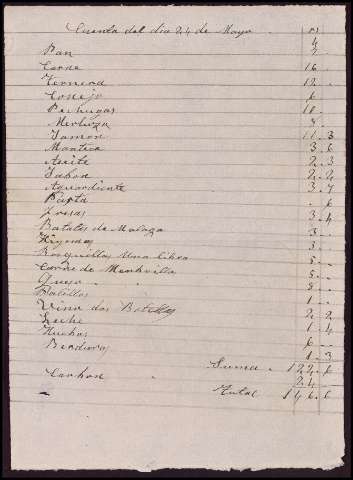 Cuenta del dia 24 de Mayo
Pan
Carne 16
Ternera 12
Conejo 6
Pechugas 10
Merluza
Jamon 11 - 3
Manteca 3 - 6
Aceite 2 - 3
Jabon 2 - 2
Aguardiente 3 - 7
Pasta - 6
Fresas 3 - 4
Batatas de Malaga 3 -
3 -
Rosquillas Una libra 5 -
Carne de 5 -
Queso 8 -
1 -
Vino dos Botellas 2 - 2
Leche 1 - 4
6 -
1 - 3
Suma 122 - 6
Carbon 24 -
Total 146 - 6